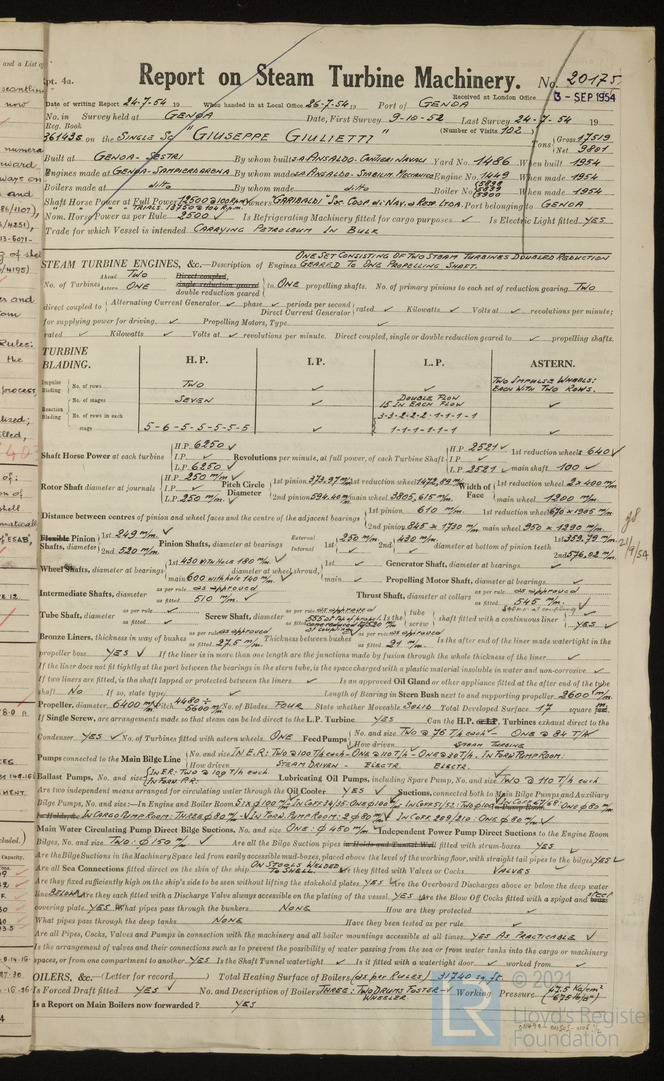 Rpt. 4a.
Report on Steam Turbine Machinery. No. 20175
Received at London Office 3 - SEP 1954
Date of writing Report 24-7-54 19 When handed in at Local Office 26-7-54 19 Port of GENOA
No. in Survey held at GENOA Date, First Survey 9-10-52 Last Survey 24-7-54 19
Reg. Book (Number of Visits 102)
36143s on the SINGLE Sc "GIUSEPPE GIULIETTI" Tons Gross 17519
Net 9801
Built at GENOA-SESTRI By whom built S.A. ANSALDO. CANTIERI NAVALI Yard No. 1486 When built 1954
Engines made at GENOA-SAMPIERDARENA By whom made S.A. ANSALDO-STABILIM. MECCANICO Engine No. 1449 When made 1954
Boilers made at ditto By whom made ditto Boiler No. When made 1954
Shaft Horse Power at Full Power 12500 @ 100 R.P.M. Owners "GARIBALDI" Soc. Coop. di Nav. a Resp. LTDA. Port belonging to GENOA
TRIALS. 13750 @ 104 R.p.m.
Nom. Horse Power as per Rule 2500 ✓ Is Refrigerating Machinery fitted for cargo purposes ✓ Is Electric Light fitted YES
Trade for which Vessel is intended CARRYING PETROLEUM IN BULK
STEAM TURBINE ENGINES, &c.—Description of Engines ONE SET CONSISTING OF TWO STEAM TURBINES DOUBLED REDUCTION
GEARED TO ONE PROPELLING SHAFT.
No. of Turbines Ahead TWO Direct coupled, single reduction geared double reduction geared to ONE propelling shafts. No. of primary pinions to each set of reduction gearing TWO
Astern ONE
direct coupled to Alternating Current Generator ✓ phase ✓ periods per second
Direct Current Generator rated ✓ Kilowatts ✓ Volts at ✓ revolutions per minute;
for supplying power for driving ✓ Propelling Motors, Type
rated ✓ Kilowatts ✓ Volts at ✓ revolutions per minute. Direct coupled, single or double reduction geared to ✓ propelling shafts.
TURBINE BLADING. H.P. I.P. L.P. ASTERN.
Impulse Blading No. of rows TWO ✓ ✓ TWO IMPULSE WHEELS: EACH WITH TWO ROWS.
Reaction Blading No. of stages SEVEN ✓ DOUBLE FLOW 15 IN EACH FLOW ✓
No. of rows in each stage 5-6-5-5-5-5-5 ✓ 3-3-2-2-2-1-1-1-1 ✓
1-1-1-1-1-1 ✓
Shaft Horse Power at each turbine H.P. 6250 ✓ Revolutions per minute, at full power, of each Turbine Shaft H.P. 2521 ✓ 1st reduction wheel 640 ✓
I.P. ✓ I.P. ✓
L.P. 6250 ✓ L.P. 2521 ✓ main shaft 100 ✓
Rotor Shaft diameter at journals H.P. 250 m/m ✓ Pitch Circle Diameter 1st pinion 373,97 m/m 1st reduction wheel 1472,89 m/m Width of Face 1st reduction wheel 2 x 400 m/m
I.P. ✓
L.P. 250 m/m ✓ 2nd pinion 594.40 m/m main wheel 3805,615 m/m main wheel 1200 m/m
Distance between centres of pinion and wheel faces and the centre of the adjacent bearings 1st pinion 610 m/m. 1st reduction wheel 670 x 1905 m/m
2nd pinion 845 x 1730 m/m. main wheel 950 x 1290 m/m.
Flexible Pinion Shafts, diameter 1st 249 m/m. ✓ Pinion Shafts, diameter at bearings External 1st 250 m/m 2nd 430 m/m. diameter at bottom of pinion teeth 1st 359.79 m/m
2nd 520 m/m. Internal 2nd 576,02 m/m.
Wheel Shafts, diameter at bearings 1st 430 WITH HOLE 180 m/m ✓ diameter at wheel shroud, 1st ✓ Generator Shaft, diameter at bearings ✓
main 600 with hole 140 m/m. ✓ main ✓ Propelling Motor Shaft, diameter at bearings ✓
Intermediate Shafts, diameter as per rule as approved Thrust Shaft, diameter at collars as per rule as approved
as fitted 510 m/m. as fitted 545 m/m. ✓
Tube Shaft, diameter as per rule ✓ Screw Shaft, diameter as per rule as approved Is the tube screw shaft fitted with a continuous liner YES
as fitted ✓
Bronze Liners, thickness in way of bushes as per rule as approved Thickness between bushes as per rule as approved Is the after end of the liner made watertight in the
as fitted 27.5 m/m. as fitted 21 m/m.
propeller boss YES ✓ If the liner is in more than one length are the junctions made by fusion through the whole thickness of the liner ✓
If the liner does not fit tightly at the part between the bearings in the stern tube, is the space charged with a plastic material insoluble in water and non-corrosive ✓
If two liners are fitted, is the shaft lapped or protected between the liners ✓ Is an approved Oil Gland or other appliance fitted at the after end of the tube
shaft NO If so, state type ✓ Length of Bearing in Stern Bush next to and supporting propeller 2600 m/m.
Propeller, diameter 6400 m/m Pitch 4480 ÷ 5600 m/m No. of Blades FOUR State whether Moveable SOLID Total Developed Surface 17 square feet.
If Single Screw, are arrangements made so that steam can be led direct to the L.P. Turbine YES Can the H.P. or I.P. Turbines exhaust direct to the
Condenser YES ✓ No. of Turbines fitted with astern wheels ONE Feed Pumps No. and size TWO @ 75 T/h each - ONE @ 84 T/h
How driven STEAM TURBINE
Pumps connected to the Main Bilge Line No. and size IN E.R: TWO @ 100 T/h each - ONE @ 110 T/h - ONE @ 80 T/h. IN FORW PUMP ROOM:
How driven STEAM DRIVEN - ELECTR. ELECTR.
Ballast Pumps, No. and size IN E.R: TWO @ 109 T/h each Lubricating Oil Pumps, including Spare Pump, No. and size TWO @ 110 T/h each
Are two independent means arranged for circulating water through the Oil Cooler YES ✓ Suctions, connected both to Main Bilge Pumps and Auxiliary
Bilge Pumps, No. and size:—In Engine and Boiler Room
Main Water Circulating Pump Direct Bilge Suctions, No. and size ONE: Ø 450 m/m ✓ Independent Power Pump Direct Suctions to the Engine Room
Bilges, No. and size TWO: Ø 150 m/m ✓ Are all the Bilge Suction pipes in Holds and Tunnel Well fitted with strum-boxes YES ✓
Are the Bilge Suctions in the Machinery Space led from easily accessible mud-boxes, placed above the level of the working floor, with straight tail pipes to the bilges YES ✓
Are all Sea Connections fitted direct on the skin of the ship ON STOOLS WELDED TO SHELL. Are they fitted with Valves or Cocks VALVES
Are they fixed sufficiently high on the ship's side to be seen without lifting the stokehold plates YES ✓ Are the Overboard Discharges above or below the deep water
line BELOW Are they each fitted with a Discharge Valve always accessible on the plating of the vessel YES ✓ Are the Blow Off Cocks fitted with a spigot and
covering plate YES ✓ What pipes pass through the bunkers NONE How are they protected ✓
What pipes pass through the deep tanks NONE Have they been tested as per rule ✓
Are all Pipes, Cocks, Valves and Pumps in connection with the machinery and all boiler mountings accessible at all times YES AS PRACTICABLE ✓
Is the arrangement of valves and their connections such as to prevent the possibility of water passing from the sea or from water tanks into the cargo or machinery
spaces, or from one compartment to another YES Is the Shaft Tunnel watertight ✓ Is it fitted with a watertight door ✓ worked from ✓
BOILERS, &c.—(Letter for record ) Total Heating Surface of Boilers (as per RULES) 31740 sq.ft
Is Forced Draft fitted YES ✓ No. and Description of Boilers THREE: TWO DRUMS FOSTER-WHEELER ✓ Working Pressure 47.5 Kg/cm² 675 lb/□"
Is a Report on Main Boilers now forwarded? YES
© 2021
Lloyd's Register
Foundation